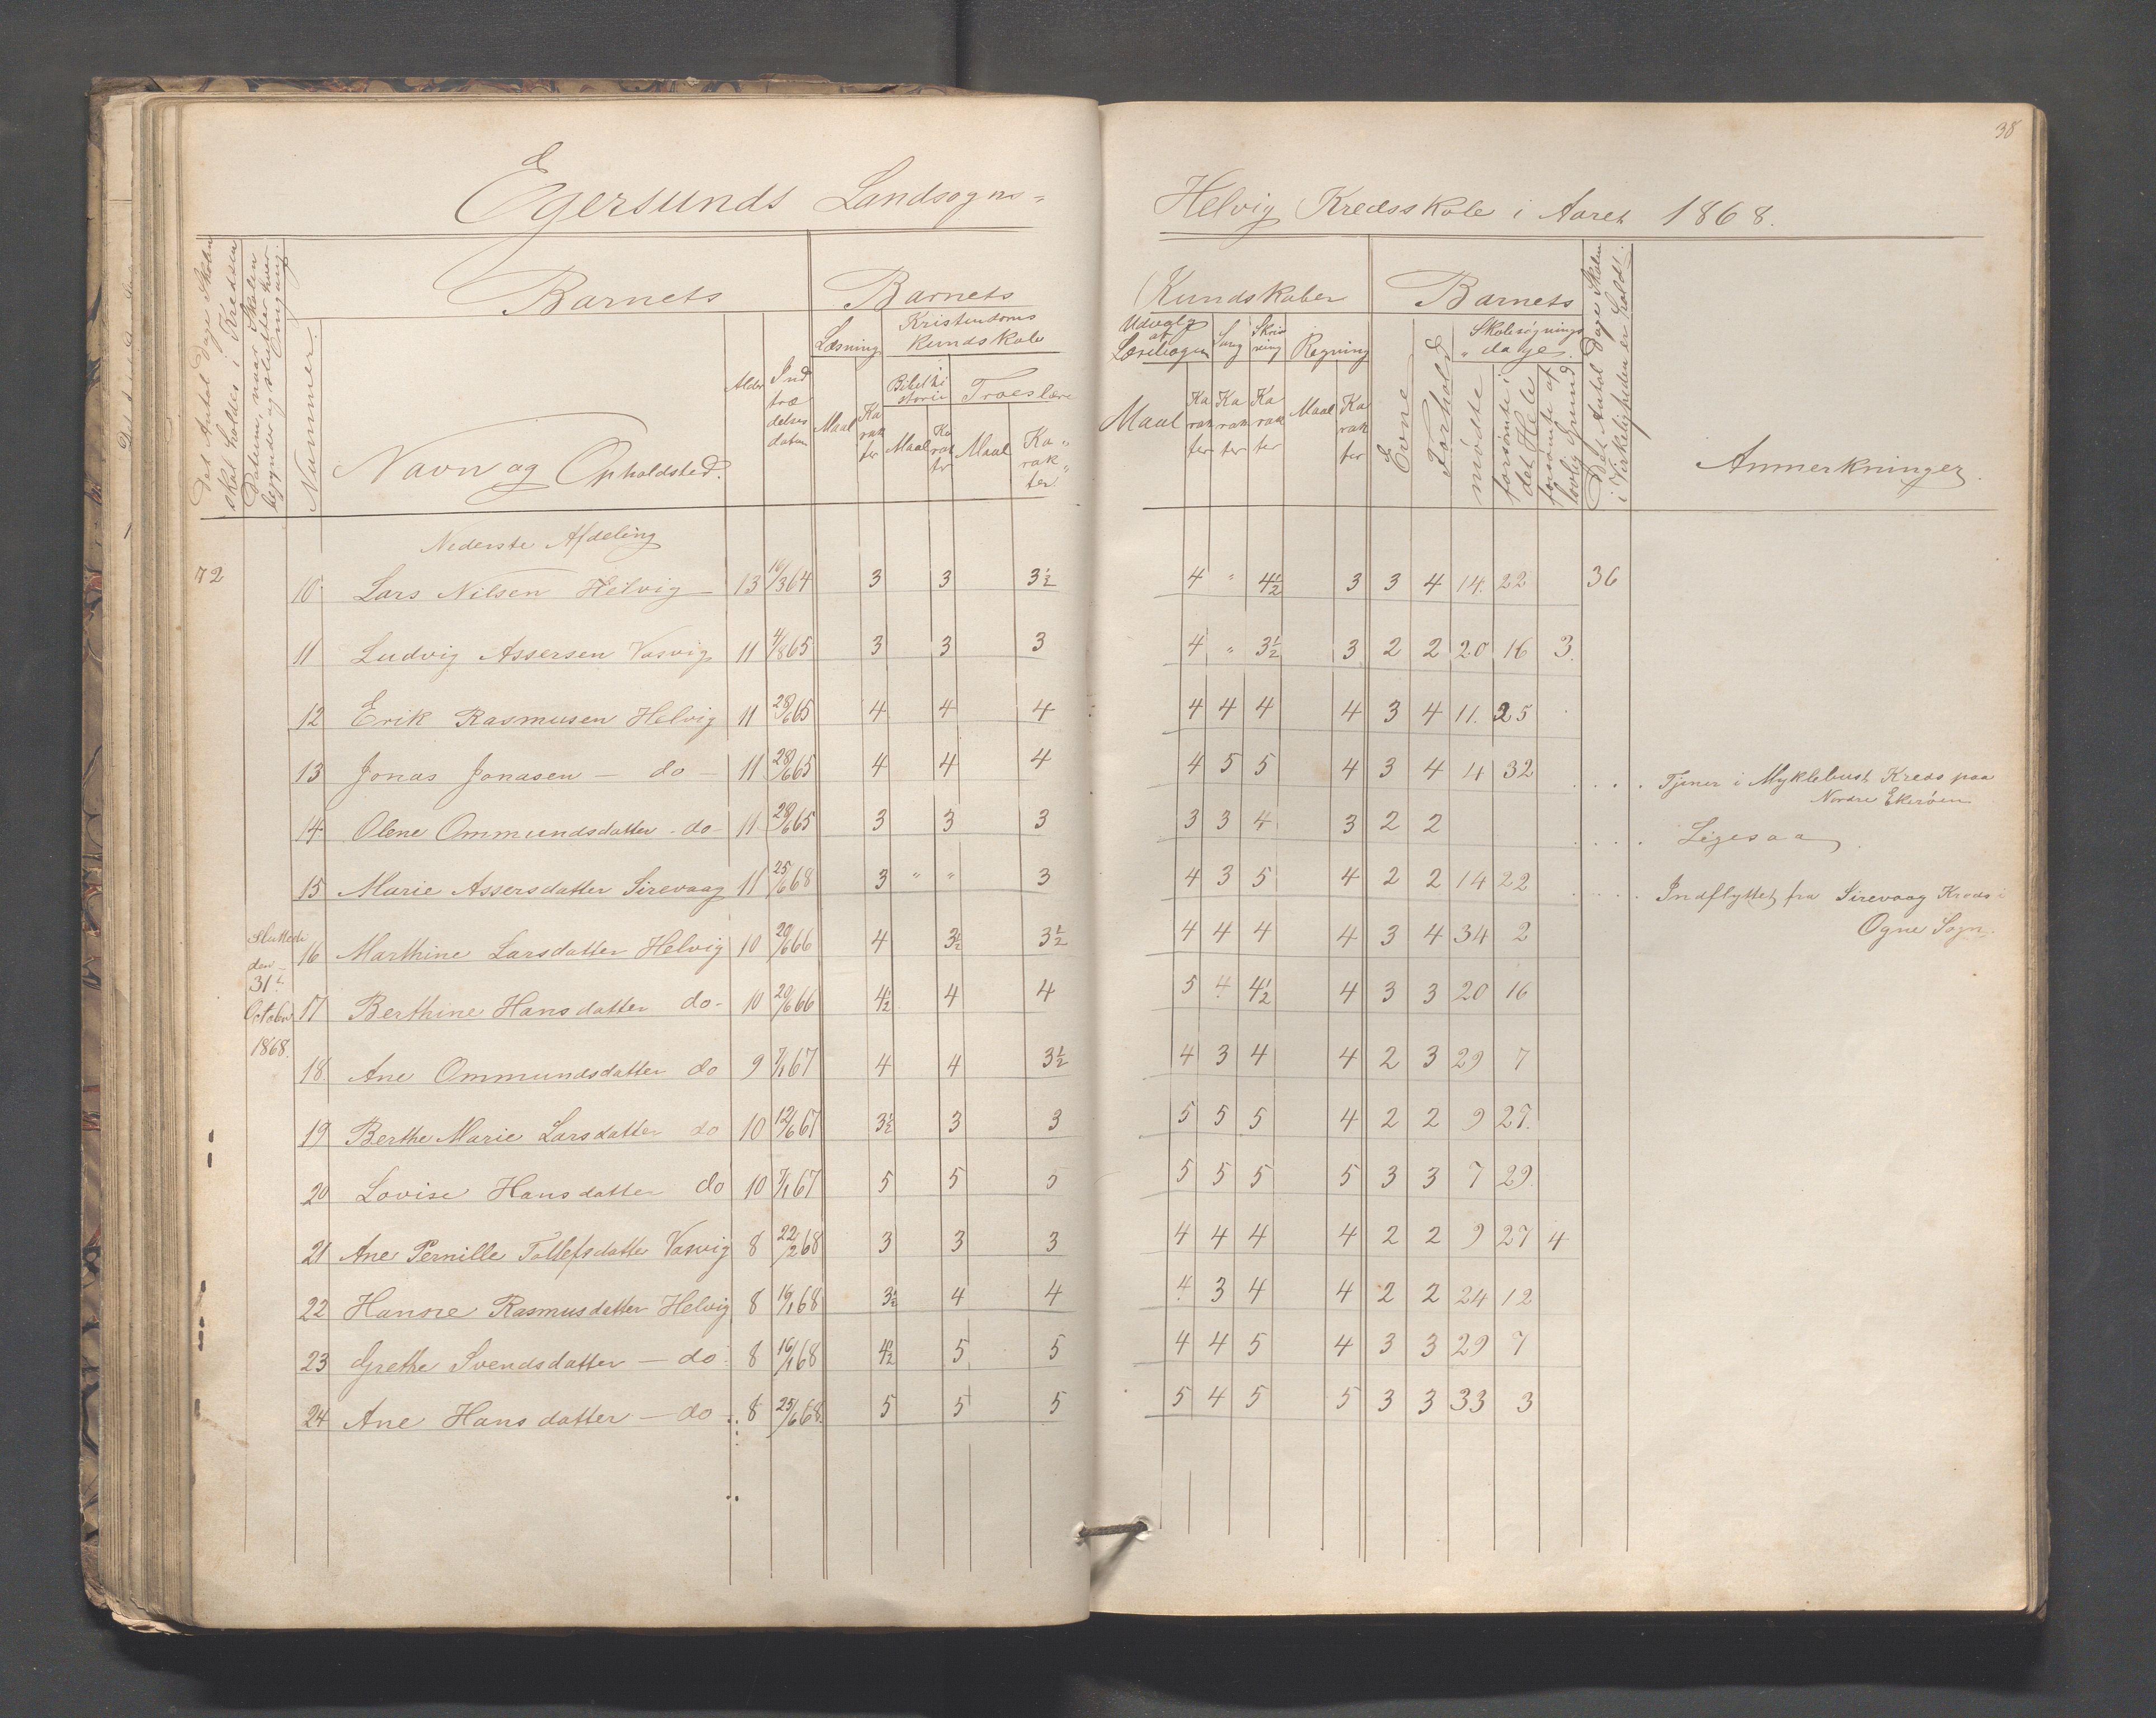 38
Egersunds Landsogns-
Helvig Kredsskole i Aaret 1868.
Det Antal Dage Skolen skal holdes i Kredsen
Datum, naar Skolen begynder og slutter hver Omgang.
Nummer.
Barnets
Navn og Opholdsted.
Alder
Ind trædelses datum
Barnets
Læsning
Maal
Karakter
Kristendoms Kundskab
Bibelhistorie
Maal
Karakter
Troeslære
Maal
Karakter
Kundskaber
Udvalg af Læsebogen
Maal
Karakter
Sang
Karakter
Skrivning
Karakter
Regning
Maal
Karakter
Barnets
Evne
Forhold
Skolesøgnings dage
mødte
forsømte i det Hele
forsømte af lovlig Grund
Det Antal Dage Skolen i Virkeligheden er holdt.
Anmerkninger.
Nederste Afdeling
72 10 Lars Nilsen Helvig 13 16/3 64 3 3 3½ 4 " 4½ 3 3 4 14 22 36
11 Ludvig Assersen Vasvig 11 4/8 65 3 3 3 4 " 3½ 3 2 2 20 16 3
12 Erik Rasmusen Helvig 11 28/6 65 4 4 4 4 4 4 4 3 4 11 25
13 Jonas Jonasen - do - 11 28/6 65 4 4 4 4 5 5 4 3 4 4 32
.... Tjener i Myklebust Kreds paa
Nordre Ekerøen
14 Olene Ommundsdatter - do - 11 28/6 65 3 3 3 3 3 4 3 2 2
.... Ligesaa
15 Marie Assersdatter Sirevaag 11 25/6 68 3 " " 3 4 3 5 4 2 2 14 22
.... Indflyttet fra Sirevaag Kreds i
Ogne Sogn.
Sluttede
den
31te
October
1868.
16 Marthine Larsdatter Helvig 10 20/6 66 4 3½ 3½ 4 4 4 4 3 4 34 2
17 Berthine Hansdatter do - 10 20/6 66 4½ 4 4 5 4 4½ 4 3 3 20 16
18 Ane Ommundsdatter do 9 7/1 67 4 4 3½ 4 3 4 4 2 3 29 7
19 Berthe Marie Larsdatter do 10 12/6 67 3½ 3 3 5 5 5 4 2 2 9 27
20 Lovise Hansdatter do 10 7/1 67 5 5 5 5 5 5 5 3 3 7 29
21 Ane Pernille Tollefsdatter Vasvig 8 22/2 68 3 3 3 4 4 4 4 2 2 9 27 4
22 Hansine Rasmusdatter Helvig 8 16/1 68 3½ 4 4 4 3 4 4 2 2 24 12
23 Grethe Svendsdatter - do 8 16/1 68 4½ 5 5 4 4 5 4 3 3 29 7
24 Ane Hansdatter - do 8 25/6 68 5 5 5 5 4 5 5 3 3 33 3